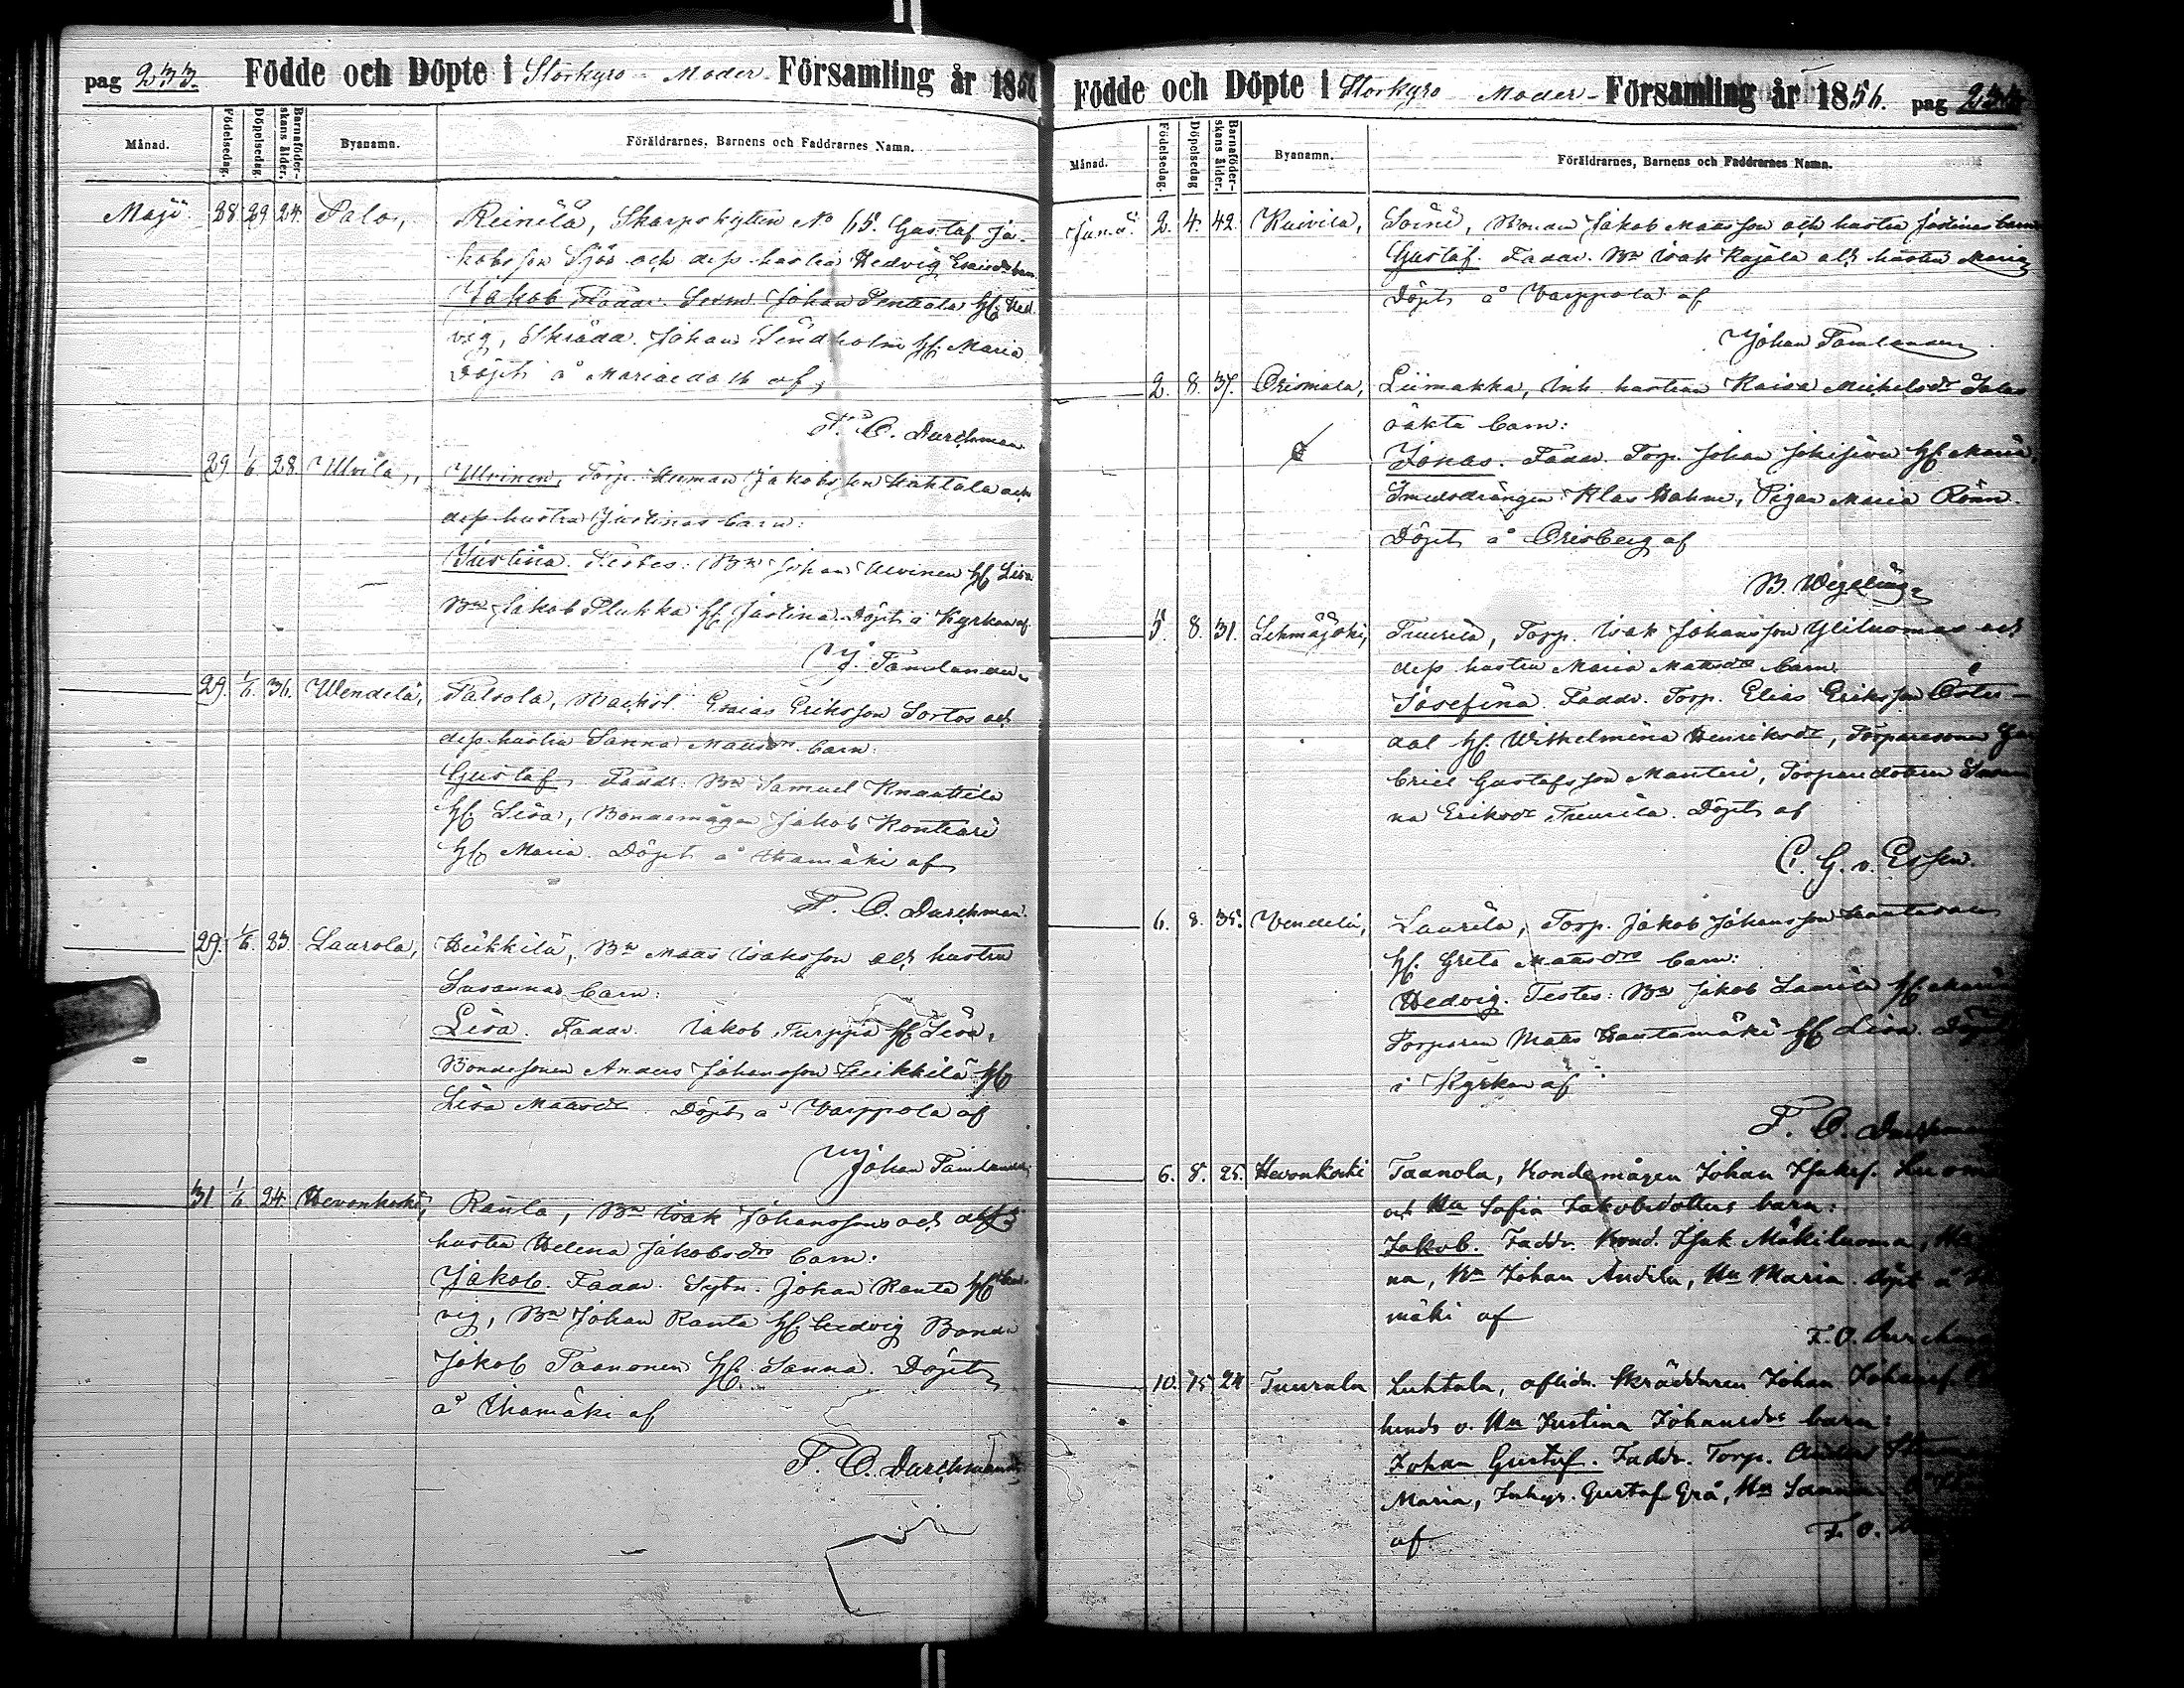 pag 233. Födde och Döpte i Storkyro - Moder Församling år 1856
Månad. Födelsedag. Döpelsedag. Barnaföderskans ålder. Byanamn. Föräldrarnes, Barnens och Faddrarnes Namn.
Maji 28 29 24. Palo, Reinilä, Skarpskytten No 65. Gustaf Ja-
kobsson Sjös och dess hustru Hedvig Esaiædr barn
Jakob Faddr. Johan Penttala Hf. Hed
vig, Skrädd. Johan Lindholm Hf. Maria
Döpt å Mariedals af
F. O. Durchman
29 1/6 28. Ulvila, Ulvinen, Torp. Herman Jakobsson Luhtala och
dess hustru Justinas barn:
Justina. Testes: Bn Johan Ulvinen Hf. Lisa
Bn Jakob Plukka Hf. Justina. Döpt i Kyrkan af
J. Tamlander
29. 1/6. 36. Wendelä, Palsola, Backst. Esaias Eriksson Sortos och
dess hustru Sanna Matsdrs barn:
Gustaf, Faddr: Bn Samuel Knuuttila
Hf. Lisa, Bondemågen Jakob Kontsari
Hf. Maria. Döpt å Ihamäki af
F. O. Durchman.
29. 1/6. 23. Laurola, Heikkilä, Bn Mats Isaksson och hustru
Susannas barn:
Lisa. Faddr. Jakob Turppa Hf. Lisa,
Bondesonen Anders Johansson Heikkilä Hf.
Lisa Matsdr. Döpt å Varppola af
Johan Tamlander
31 1/6 24. Hevonkoski, Ranta, Bn Isak Johansson och dess
hustru Helena Jakobsdrs barn:
Jakob. Faddr. Sytn. Johan Ranta Hf. Hed-
vig, Bn Johan Ranta Hf. Hedvig Bonde
Jakob Taanonen Hf. Sanna. Döpt
å Ihamäki af
F. O. Durchman
Födde och Döpte i Storkyro Moder- Församling år 1856. pag 234
Månad. Födelsedag. Döpelsedag Barnaföderskans ålder. Byanamn. Föräldrarnes, Barnens och Faddrarnes Namn.
Junii 2. 4. 42. Kuivila, Soini, Bonden Jakob Matsson och hustru Justinas barn
Gustaf. Faddr. Bn Isak Kojola och hustru Maria
Döpt å Varppola af
Johan Tamlander
2. 8. 37. Orismala, Liimakka, Inh. hustrun Kaisa Michelsdr Salas
oäkta barn:
Jonas. Faddr. Torp. Johan Hf. Maria,
Smedsdrängen Klas Holm, Pigan Maria Rönn.
Döpt å Orisberg af
B. Wegelius
5. 8. 31. Lehmäjoki, Tuurila, Torp. Isak Johansson Yliluomas och
dess hustru Maria Matsdrs barn
Josefina. Faddr. Torp. Elias Eriksson Öster-
dal Hf. Wilhelmina Henriksdr, Torparesonen Ga
briel Gustafsson Mantsri, Torparedottren Susan
na Eriksdr Tuurila. Döpt af
C. G. v. Essen.
6. 8. 35. Vendelä, Laurila, Torp. Jakob Johansson
Hf. Greta Matsdrs barn:
Hedvig. Testes: Bn Jakob Laurila Hf. Maria
Torparen Mats Hautamäki Hf. Lisa. Döpt
i Kyrkan af
F. O. Durchman
6. 8. 25. Hevonkoski Taanola, Bondemågen Johan Isaks. Luoma
och Hu Sofia Jakobsdotters barn:
Jakob. Faddr. Bond. Isak Mäkiluoma, Hu
na, Bn Johan Anttila, Hu Maria. Döpt å
mäki af
F. O. Durchman
10. 15 24 Tuurala Luhtala, aflidn. Skräddaren Johan Johans.
lunds o. Hu Justina Johansdrs barn:
Johan Gustaf. Faddr. Torp. Anders
Maria, Inhys. Gustaf Grå, Hu Sanna.
af F. O.